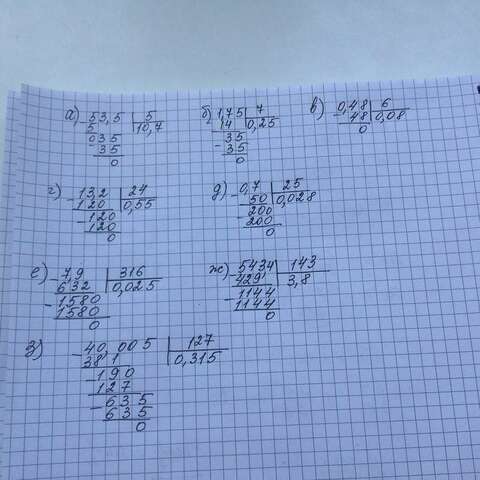 а) 53,5 | 5 б) 1,75 | 7 в) 0,48 | 6
5 | 10,7 14 | 0,25 48 | 0,08
035 35 0
35 35
0 0
г) 13,2 | 24 д) 0,7 | 25
120 | 0,55 50 | 0,028
120 200
120 200
0 0
е) 7,9 | 316 ж) 5434 | 143
632 | 0,025 429 | 3,8
1580 1144
1580 1144
0 0
з) 40,005 | 127
38 1 | 0,315
190
127
635
635
0